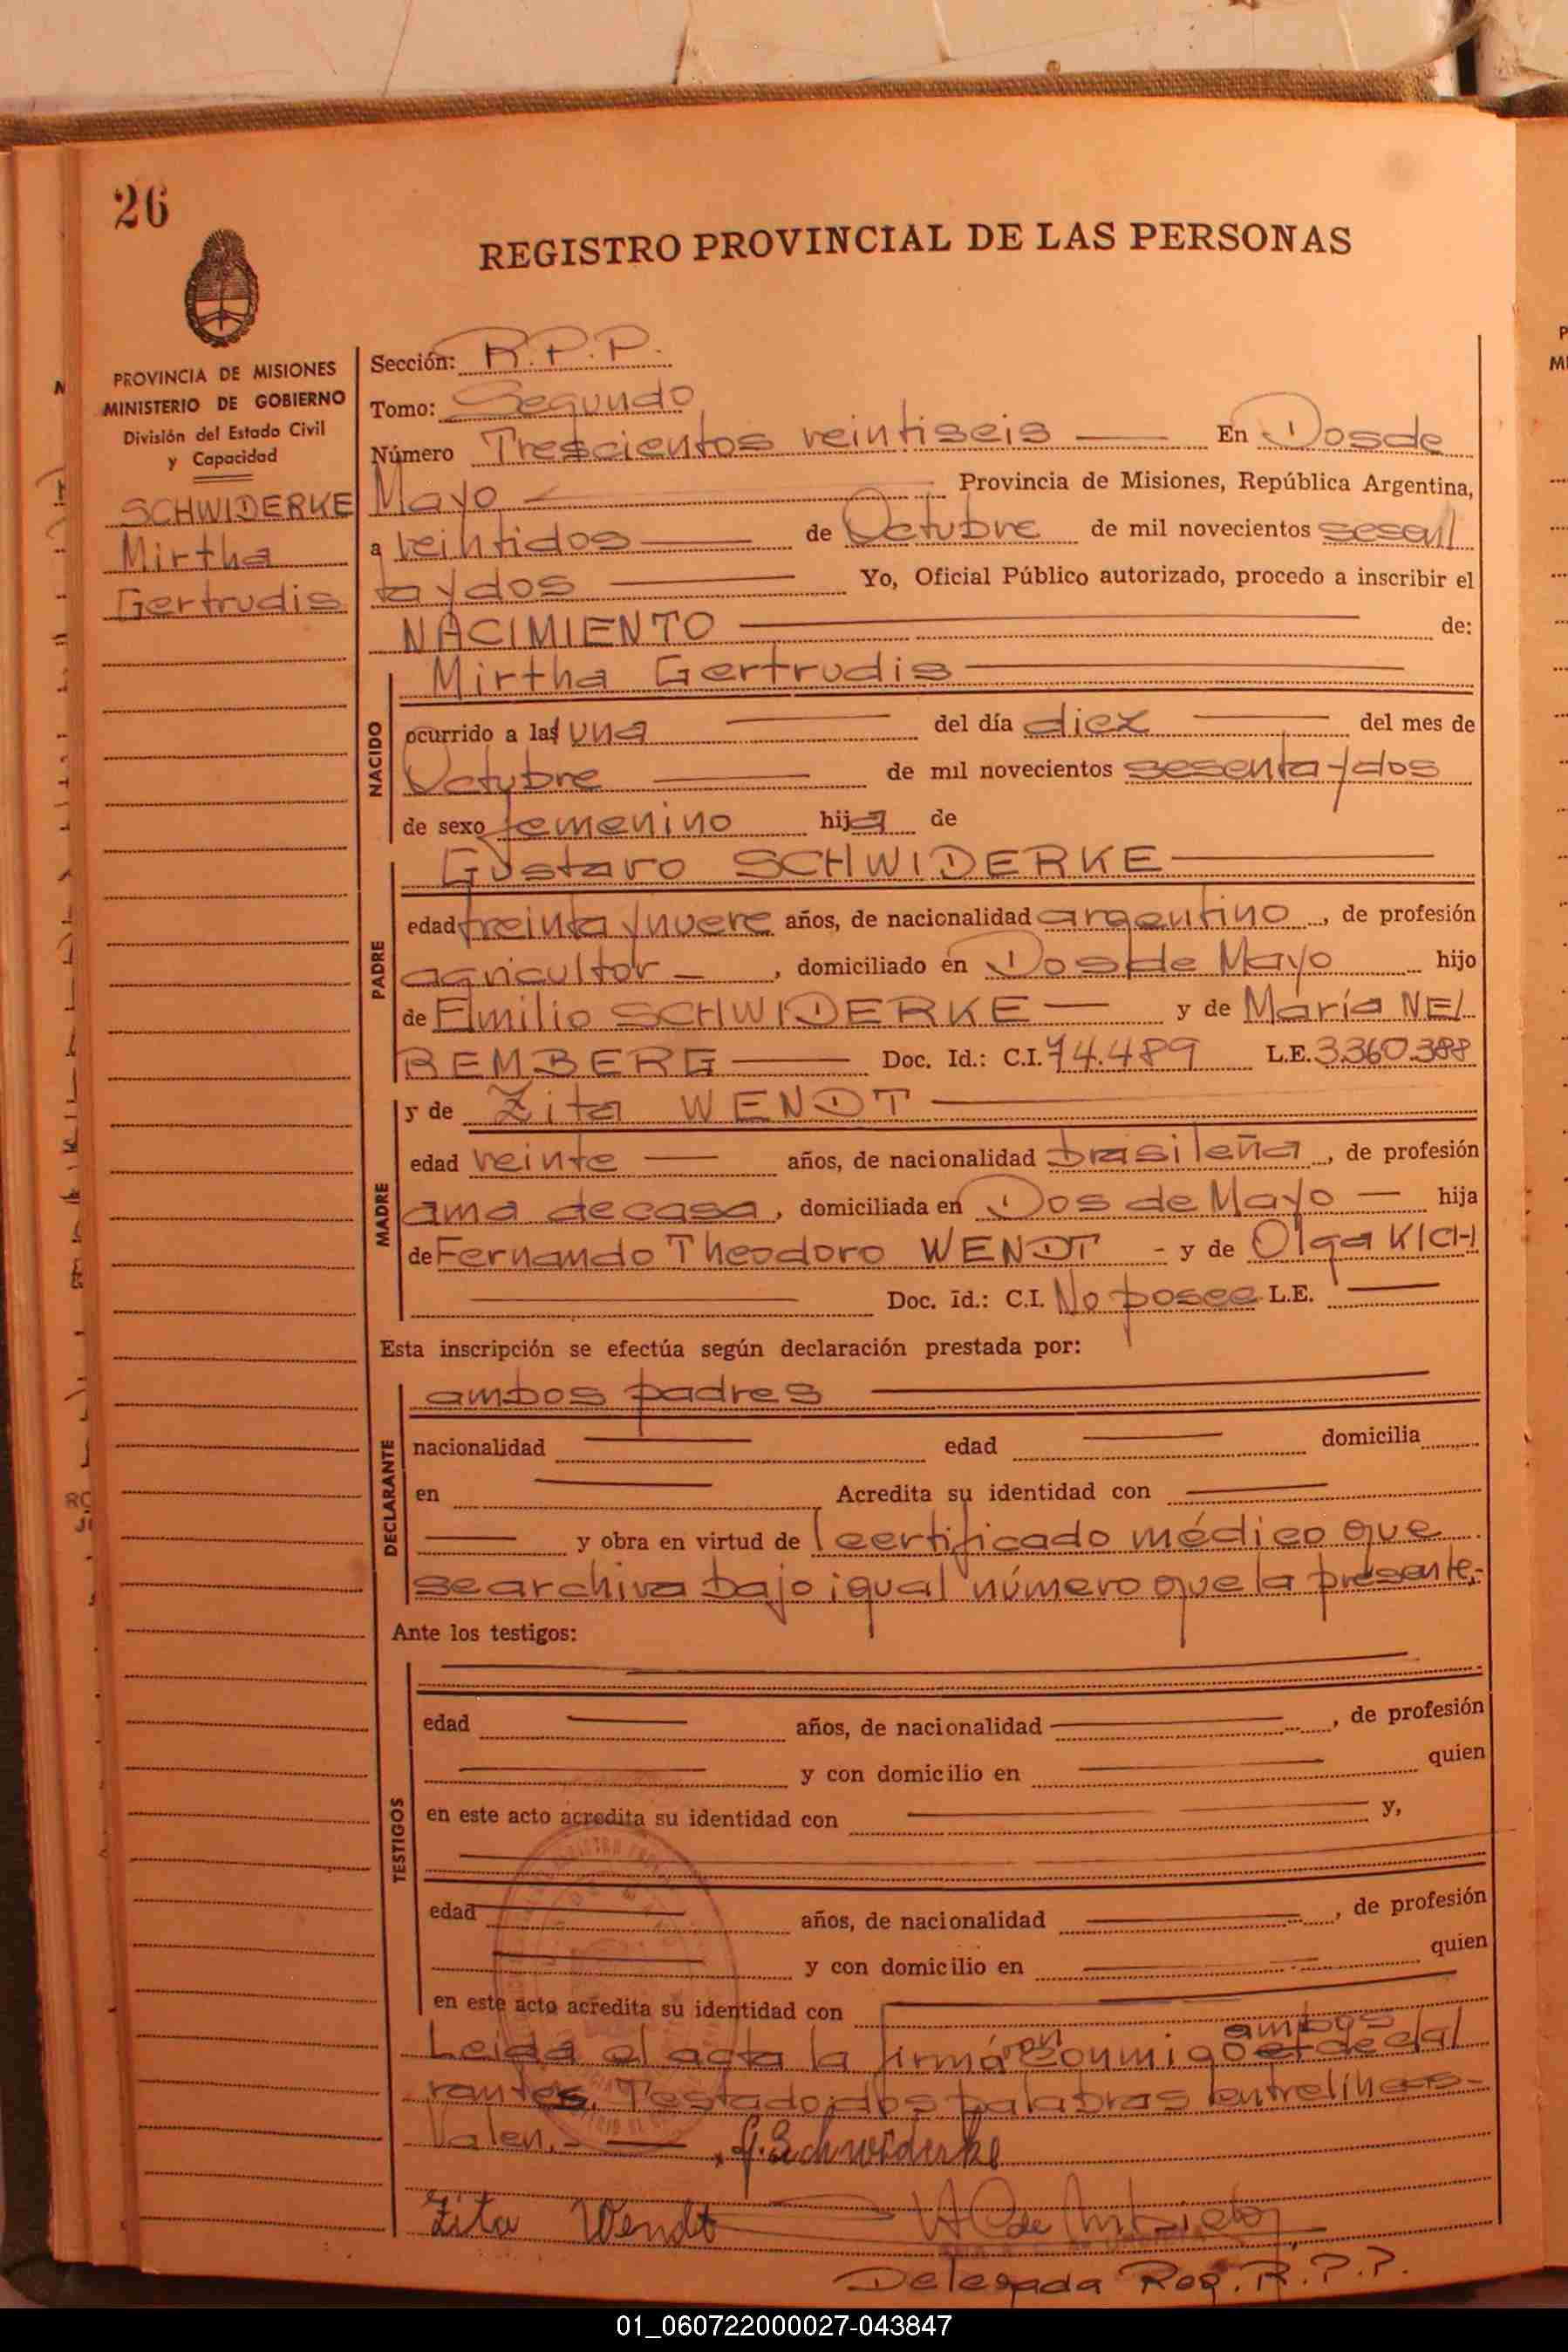 26
REGISTRO PROVINCIAL DE LAS PERSONAS
PROVINCIA DE MISIONES
MINISTERIO DE GOBIERNO
División del Estado Civil
y Capacidad
SCHWIDERKE
Mirtha
Gertrudis
Sección: R.P.P.
Tomo: Segundo
Número Trescientos veintiseis En Dos de
Mayo Provincia de Misiones, República Argentina,
a veintidos de Octubre de mil novecientos sesen
ta y dos Yo, Oficial Público autorizado, procedo a inscribir el
NACIMIENTO de:
NACIDO
Mirtha Gertrudis
ocurrido a las una del día diez del mes de
Octubre de mil novecientos sesenta y dos
de sexo femenino hija de
PADRE
Gustavo SCHWIDERKE
edad treinta y nueve años, de nacionalidad argentino, de profesión
agricultor, domiciliado en Dos de Mayo hijo
de Emilio SCHWIDERKE y de María NE
REMBERG Doc. Id.: C.I. 74.489 L.E. 3.360.388
MADRE
y de Zita WENDT
edad veinte años, de nacionalidad brasileña, de profesión
ama de casa, domiciliada en Dos de Mayo hija
de Fernando Theodoro WENDT - y de Olga KICH
Doc. Id.: C.I. No posee L.E.
Esta inscripción se efectúa según declaración prestada por:
DECLARANTE
ambos padres
nacionalidad edad domicilia
en Acredita su identidad con
y obra en virtud de l certificado médico que
se archiva bajo igual número que la presente.-
Ante los testigos:
TESTIGOS
edad años, de nacionalidad , de profesión
y con domicilio en quien
en este acto acredita su identidad con y,
edad años, de nacionalidad , de profesión
y con domicilio en quien
en este acto acredita su identidad con
ambos
Leída el acta la firmáron conmigo el decla
rantes. Testado: dos palabras entrelíneas-
Valen.- G. Schwiderke
Zita Wendt
Delegada Reg. R.P.P.
01_060722000027-043847